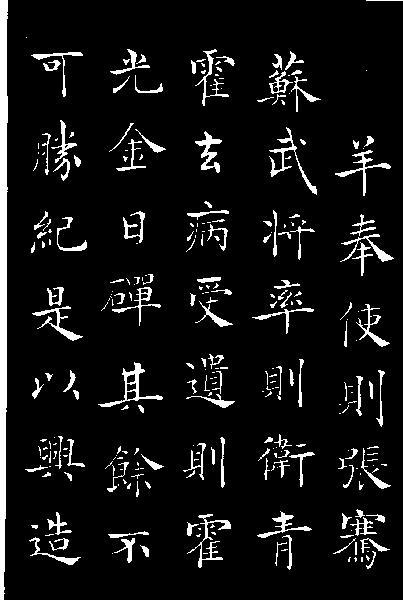 羊奉使則張騫
蘇武將率則衛青
霍去病受遺則霍
光金日磾其餘不
可勝紀是以興造